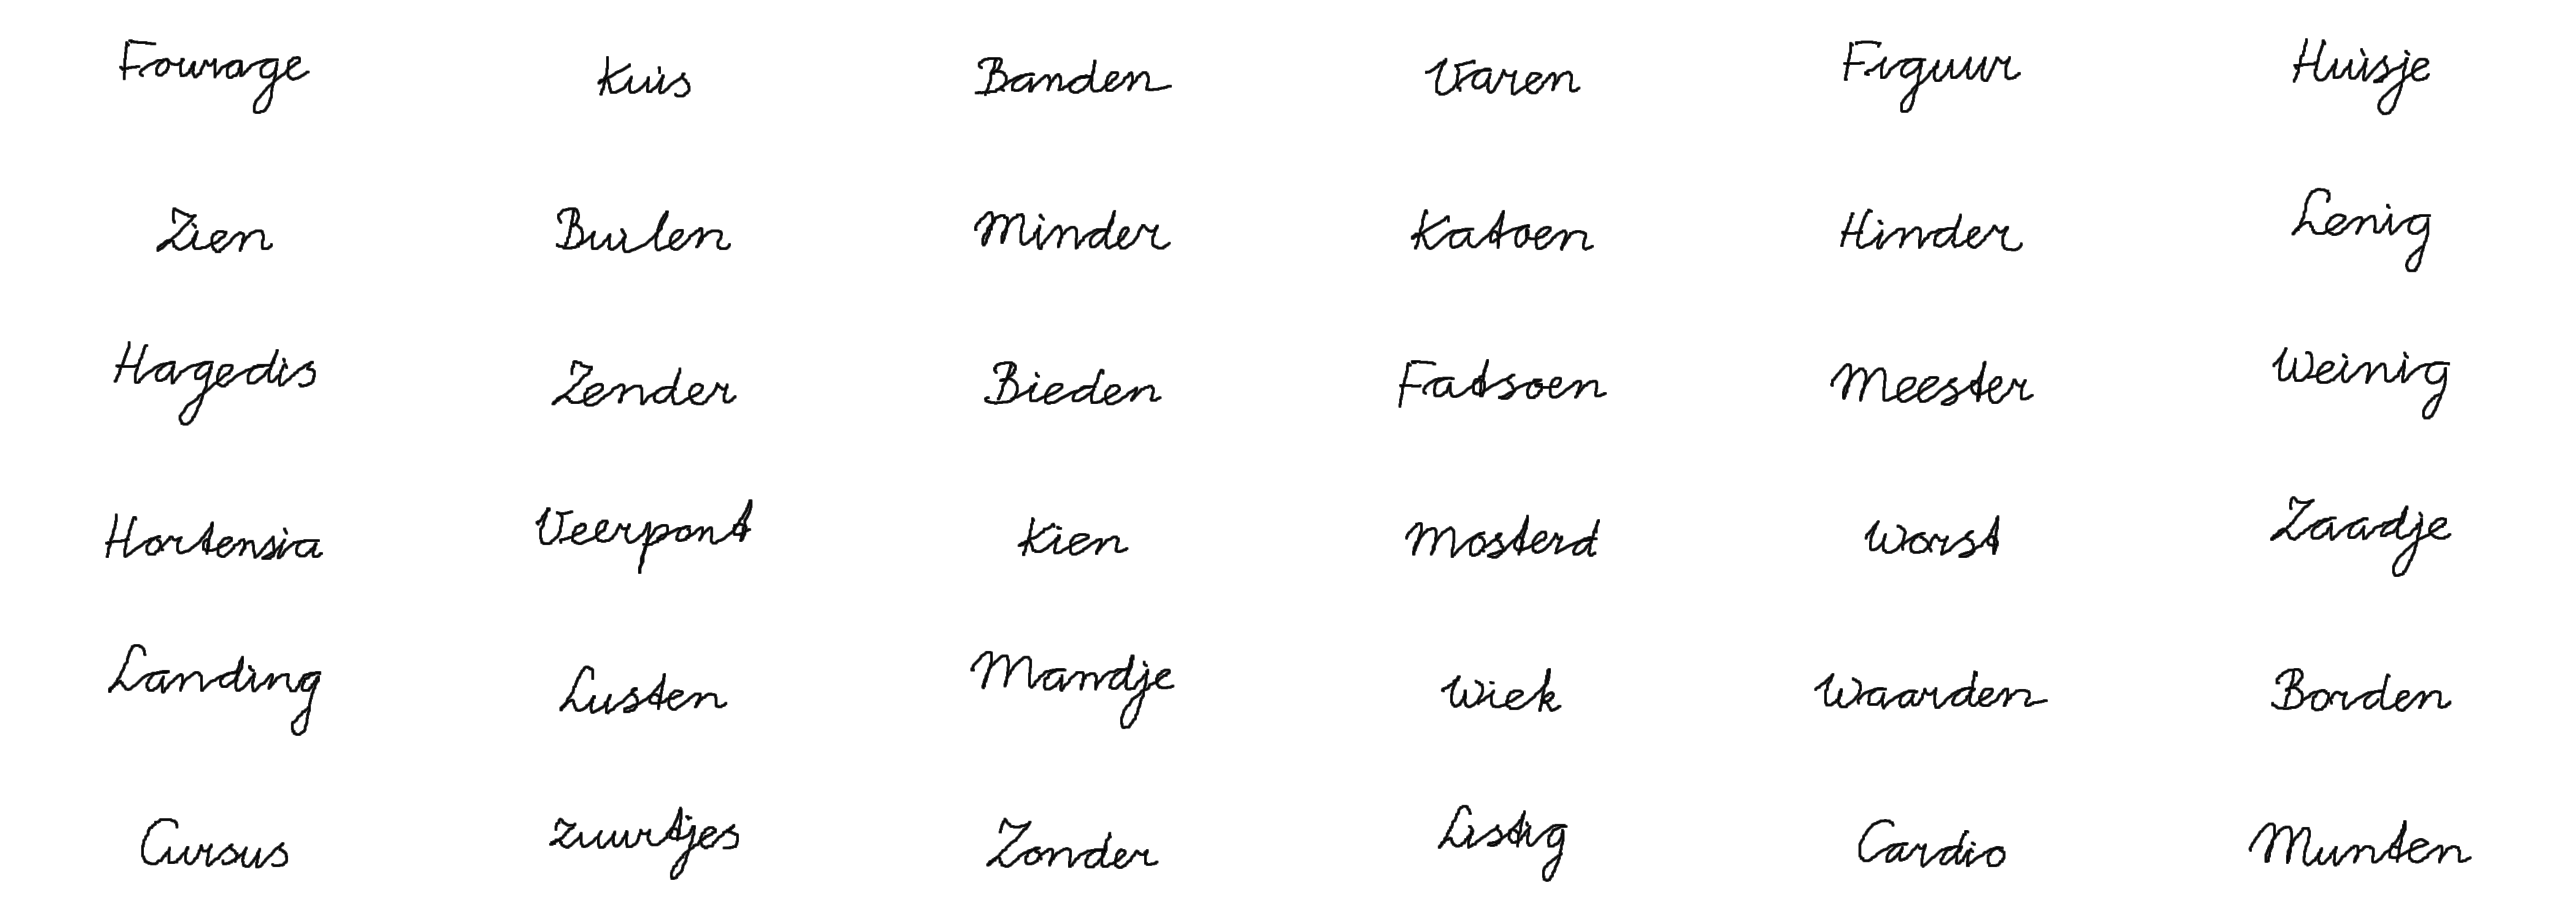 Fourage Kuis Banden Varen Figuur Huisje
Zien Builen Minder Katoen Hinder Lenig
Hagedis Zender Bieden Fatsoen Meester Weinig
Hortensia Veerpont Kien Mosterd Worst Zaadje
Landing Lusten Mandje Wiek Waarden Borden
Cursus zuurtjes Zonder Listig Cardio Munten